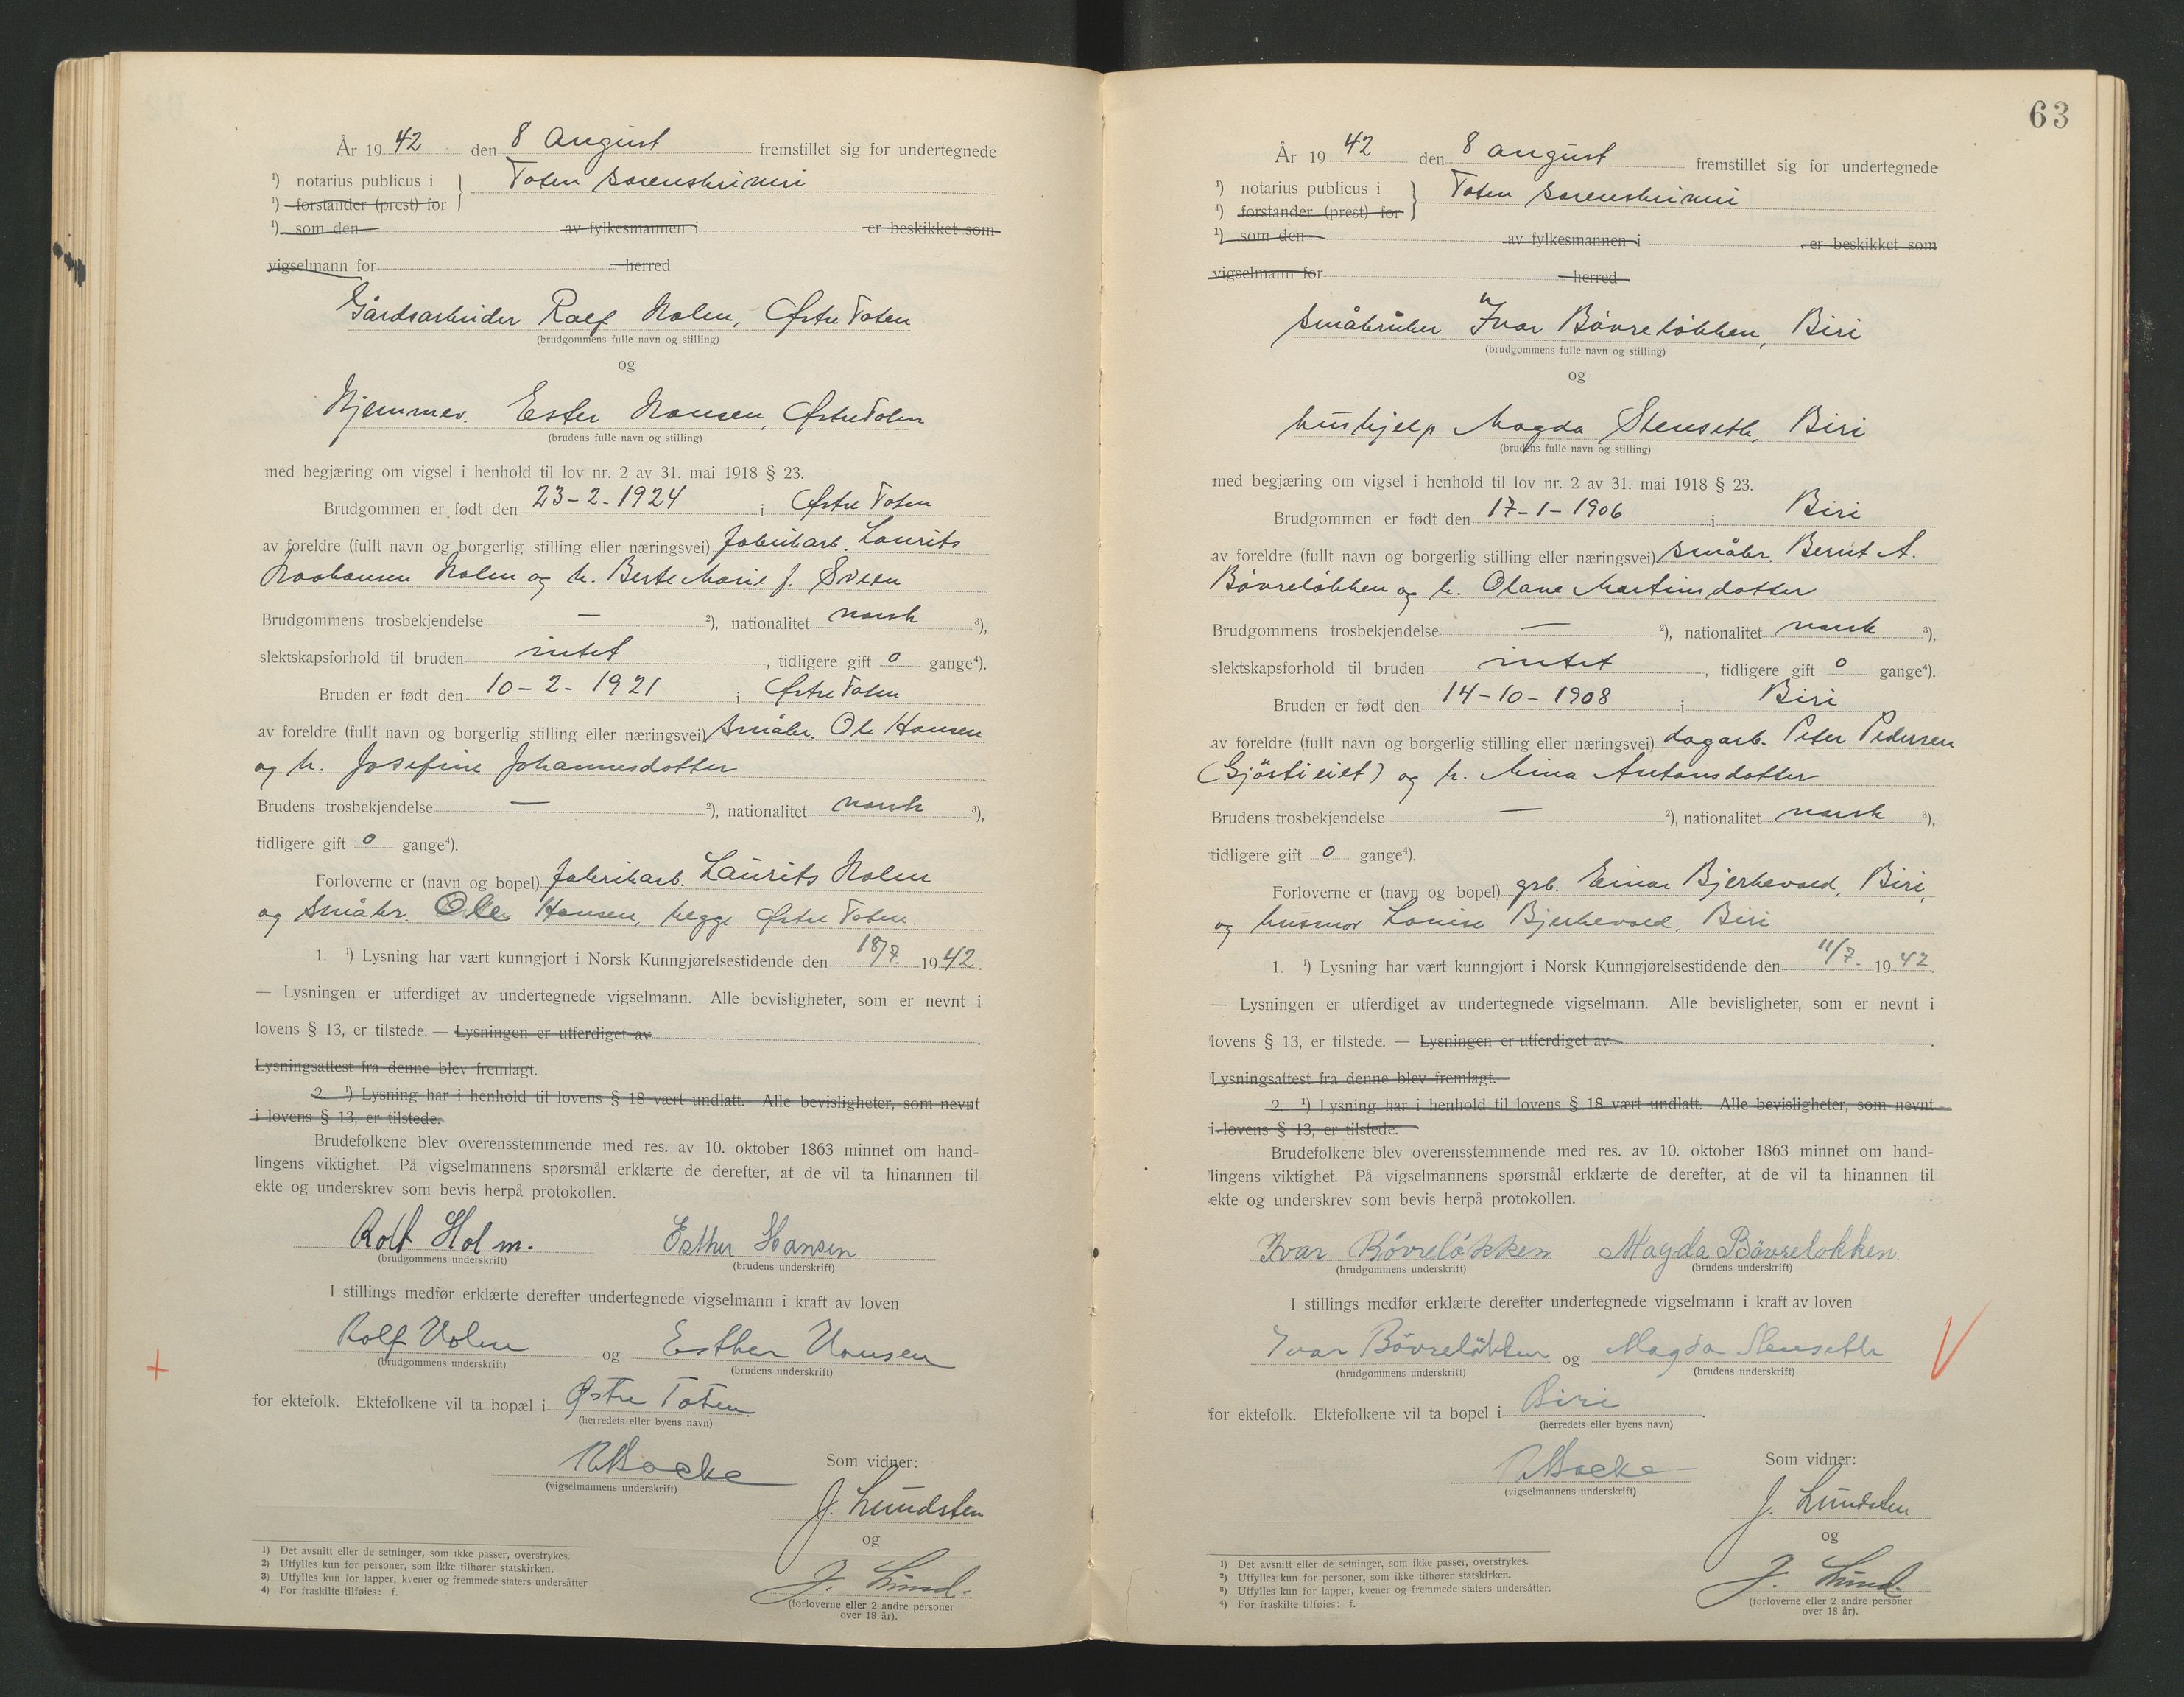 År 19 42 den 8 august fremstillet sig for undertegnede
¹) notarius publicus i } Toten sorenskriveri
¹) forstander (prest) for
¹) som den av fylkesmannen i er beskikket som
vigselmann for herred
Gårdsarbeider Rolf Holm, Østre Toten
(brudgommens fulle navn og stilling)
og
Hjemmev. Ester Hansen, Østre Toten
(brudens fulle navn og stilling)
med begjæring om vigsel i henhold til lov nr. 2 av 31. mai 1918 § 23.
Brudgommen er født den 23-2-1924 i Østre Toten
av foreldre (fullt navn og borgerlig stilling eller næringsvei) fabrikarb. Laurits
Holm og h. Berte Marie f. Sveen
Brudgommens trosbekjendelse — ²), nationalitet norsk ³),
slektskapsforhold til bruden intet, tidligere gift 0 gange⁴).
Bruden er født den 10-2-1921 i Østre Toten
av foreldre (fullt navn og borgerlig stilling eller næringsvei) småbr. Ole Hansen
og h. Josefine Johannesdotter
Brudens trosbekjendelse — ²), nationalitet norsk ³),
tidligere gift 0 gange⁴).
Forloverne er (navn og bopel) fabrikarb. Laurits Holm
og småbr. Ole Hansen, begge Østre Toten.
1. ¹) Lysning har vært kunngjort i Norsk Kunngjørelsestidende den 18/7. 1942.
— Lysningen er utferdiget av undertegnede vigselmann. Alle bevisligheter, som er nevnt i
lovens § 13, er tilstede. — Lysningen er utferdiget av .
Lysningsattest fra denne blev fremlagt.
2. ¹) Lysning har i henhold til lovens § 18 vært undlatt. Alle bevisligheter, som nevnt
i lovens § 13, er tilstede.
Brudefolkene blev overensstemmende med res. av 10. oktober 1863 minnet om hand-
lingens viktighet. På vigselmannens spørsmål erklærte de derefter, at de vil ta hinannen til
ekte og underskrev som bevis herpå protokollen.
Rolf Holm. Esther Hansen
(brudgommens underskrift) (brudens underskrift)
I stillings medfør erklærte derefter undertegnede vigselmann i kraft av loven
Rolf Holm og Esther Hansen
(brudgommens underskrift) (brudens underskrift)
for ektefolk. Ektefolkene vil ta bopæl i Østre Toten
(herredets eller byens navn)
Som vidner:
(vigselmannens underskrift)
J. Lundsten
og
J. Lund.
(forloverne eller 2 andre personer
over 18 år).
1) Det avsnitt eller de setninger, som ikke passer, overstrykes.
2) Utfylles kun for personer, som ikke tilhører statskirken.
3) Utfylles kun for lapper, kvener og fremmede staters undersåtter
4) For fraskilte tilføies: f.
63
År 19 42 den 8 august fremstillet sig for undertegnede
¹) notarius publicus i } Toten sorenskriveri
¹) forstander (prest) for
¹) som den av fylkesmannen i er beskikket som
vigselmann for herred
småbruker Ivar Bövrelökken, Biri
(brudgommens fulle navn og stilling)
og
hushjelp Magda Stenseth, Biri
(brudens fulle navn og stilling)
med begjæring om vigsel i henhold til lov nr. 2 av 31. mai 1918 § 23.
Brudgommen er født den 17-1-1906 i Biri
av foreldre (fullt navn og borgerlig stilling eller næringsvei) småbr. Bernt A.
Bövrelökken og h. Olane Martinsdotter
Brudgommens trosbekjendelse — ²), nationalitet norsk ³),
slektskapsforhold til bruden intet, tidligere gift 0 gange⁴).
Bruden er født den 14-10-1908 i Biri
av foreldre (fullt navn og borgerlig stilling eller næringsvei) dagarb. Peter Pedersen
og h. Mina Antonsdotter
Brudens trosbekjendelse — ²), nationalitet norsk ³),
tidligere gift 0 gange⁴).
Forloverne er (navn og bopel) grb. Einar Bjerkevold, Biri,
og husmor Louise Bjerkevold, Biri
1. ¹) Lysning har vært kunngjort i Norsk Kunngjørelsestidende den 11/7. 1942.
— Lysningen er utferdiget av undertegnede vigselmann. Alle bevisligheter, som er nevnt i
lovens § 13, er tilstede. — Lysningen er utferdiget av .
Lysningsattest fra denne blev fremlagt.
2. ¹) Lysning har i henhold til lovens § 18 vært undlatt. Alle bevisligheter, som nevnt
i lovens § 13, er tilstede.
Brudefolkene blev overensstemmende med res. av 10. oktober 1863 minnet om hand-
lingens viktighet. På vigselmannens spørsmål erklærte de derefter, at de vil ta hinannen til
ekte og underskrev som bevis herpå protokollen.
Ivar Bövrelökken Magda Bövreløkken.
(brudgommens underskrift) (brudens underskrift)
I stillings medfør erklærte derefter undertegnede vigselmann i kraft av loven
Ivar Bövrelökken og Magda Stenseth
(brudgommens underskrift) (brudens underskrift)
for ektefolk. Ektefolkene vil ta bopel i Biri.
(herredets eller byens navn)
Som vidner:
(vigselmannens underskrift)
J. Lundsten
og
J. Lund.
(forloverne eller 2 andre personer
over 18 år).
1) Det avsnitt eller de setninger, som ikke passer, overstrykes.
2) Utfylles kun for personer, som ikke tilhører statskirken.
3) Utfylles kun for lapper, kvener og fremmede staters undersåtter.
4) For fraskilte tilføies: f.